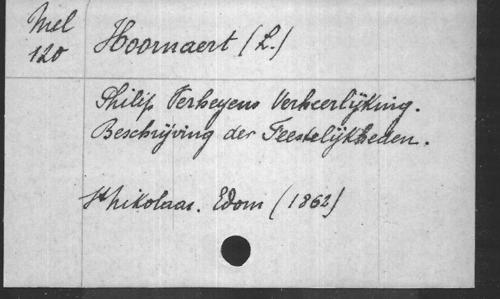 Mel
120
Hoornaert (L.)
Philip Verheyens Verheerlijking.
Beschrijving der Feestelijkheden.
St Nikolaas. Edom (1862)